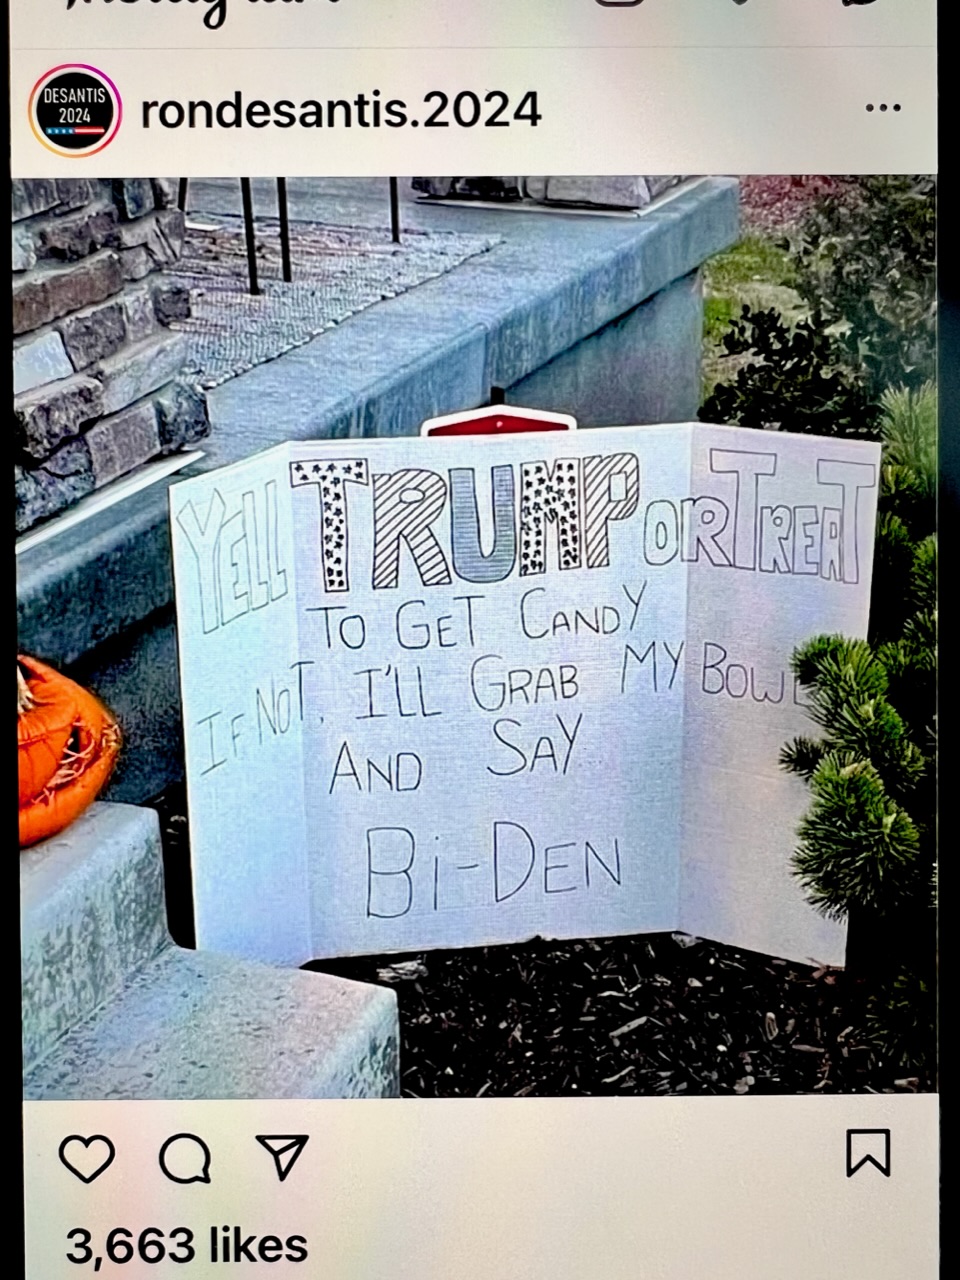 DESANTIS
2024
rondesantis.2024
YELL TRUMP OR TREAT
TO GET CANDY
IF NOT, I'LL GRAB MY BOWL
AND SAY
Bi-DEN
3,663 likes